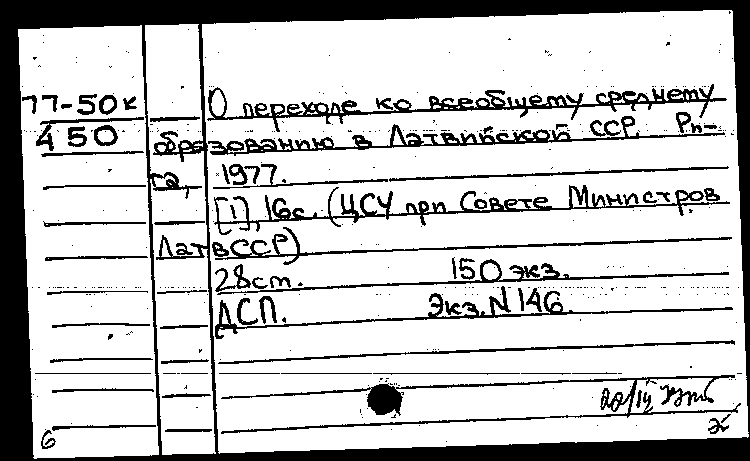 77-50к
450
О переходе ко всеобщему среднему
образованию в Латвийской ССР. Ри-
га, 1977.
[1], 16с. (ЦСУ при Совете Министров
Латв ССР)
28см. 150 экз.
ДСП. Экз. N 146.
6